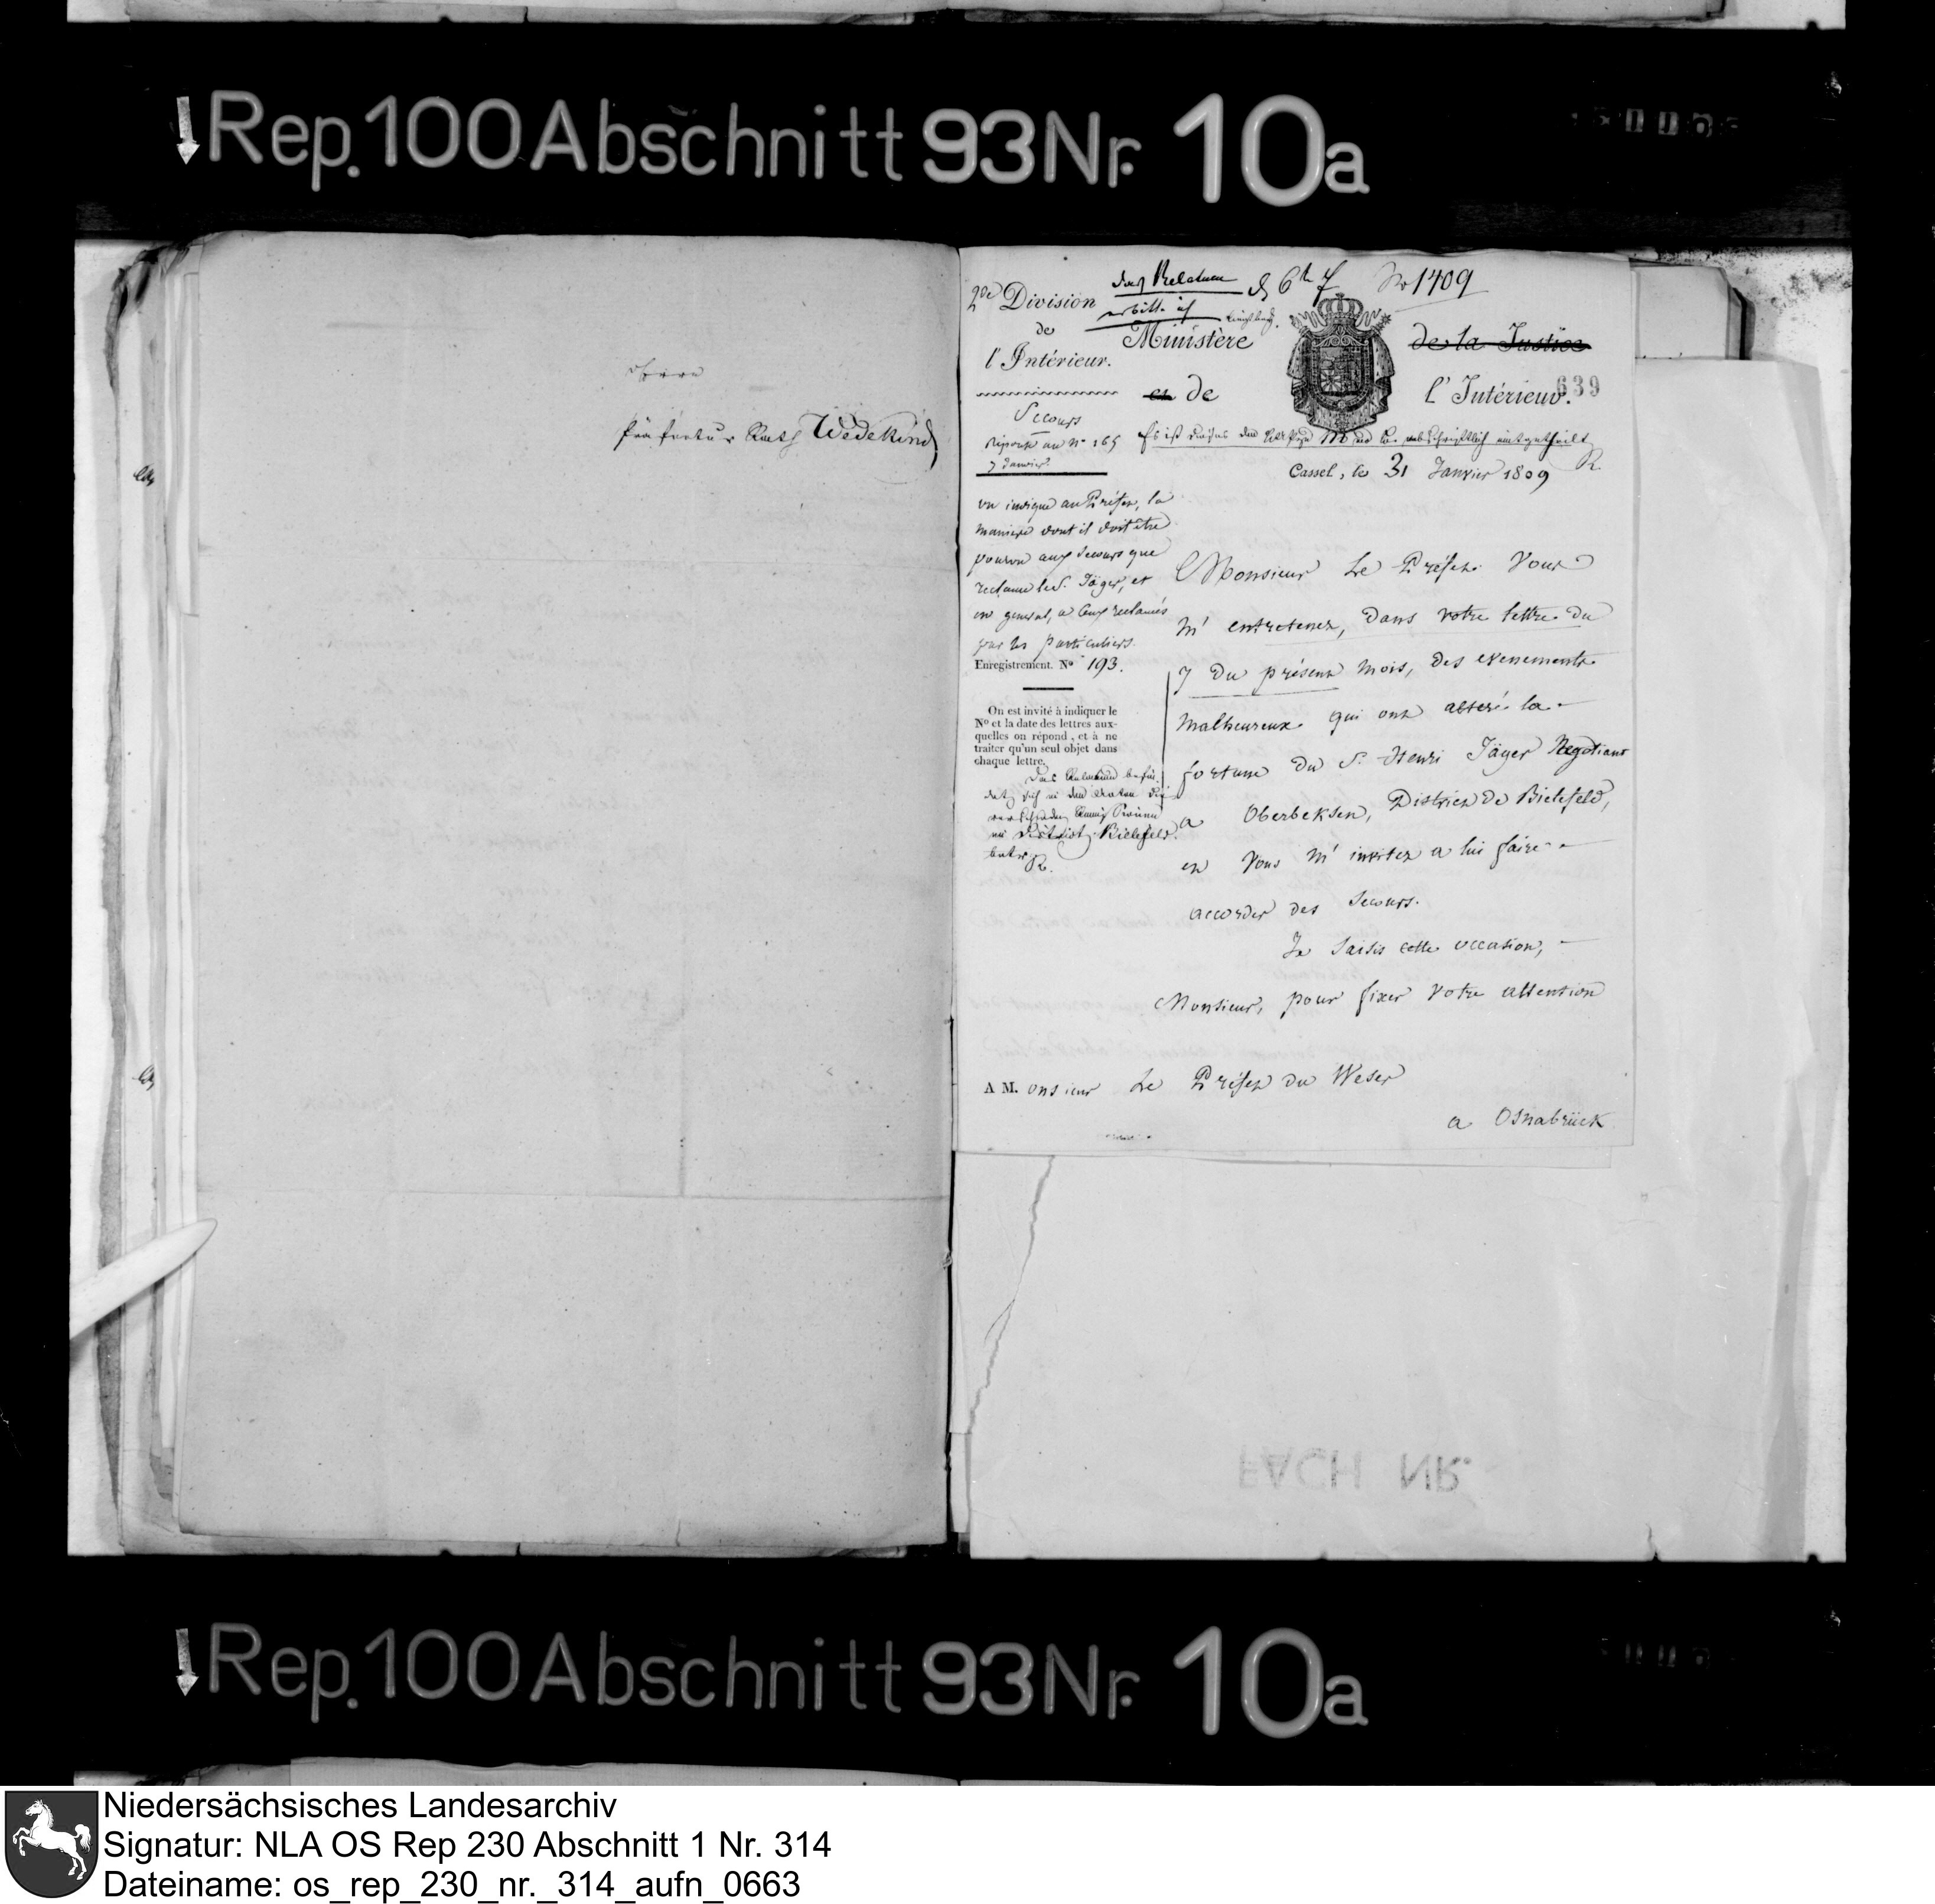 Rep. 100 Abschnitt 93 Nr. 10a
Herrn
Präfectur Rath Wedekind
das Relatum
erbitt. ich
d 6t 7
No 1409
2de Division
de
l'Intérieur.
Ministère de la Justice
et de l'Intérieur.
639
Secours
Réponse au No 165
7 Janvier
Es ist dieses dem mitgetheilt
R.
Cassel, le 31 Janvier 1809
on indique au Préfet, la
maniere dont il doit être
pourvu aux Secours que
reclame le S. Jäger, et
en general, a Ceux reclamés
par les particuliers.
Enregistrement. No 193.
On est invité à indiquer le
No et la date des lettres aux-
quelles on répond, et à ne
traiter qu'un seul objet dans
chaque lettre.
Das befin-
det sich in den Acten die
im District Bielefeld
betr.
R.
Monsieur Le Préfet. Vous
m'entretenez, dans votre lettre du
7 du présent mois, des evenements
malheureux qui ont alteré la
fortune du S. Henri Jäger Negotiant
a Oberbeksen, District de Bielefeld,
et Vous m'invitez a lui faire
accorder des Secours.
Je Saisis cette occasion,
Monsieur, pour fixer Votre attention
A M. onsieur Le Préfet du Weser
a Osnabrück
FACH NR.
Rep. 100 Abschnitt 93 Nr. 10a
Niedersächsisches Landesarchiv
Signatur: NLA OS Rep 230 Abschnitt 1 Nr. 314
Dateiname: os_rep_230_nr._314_aufn_0663